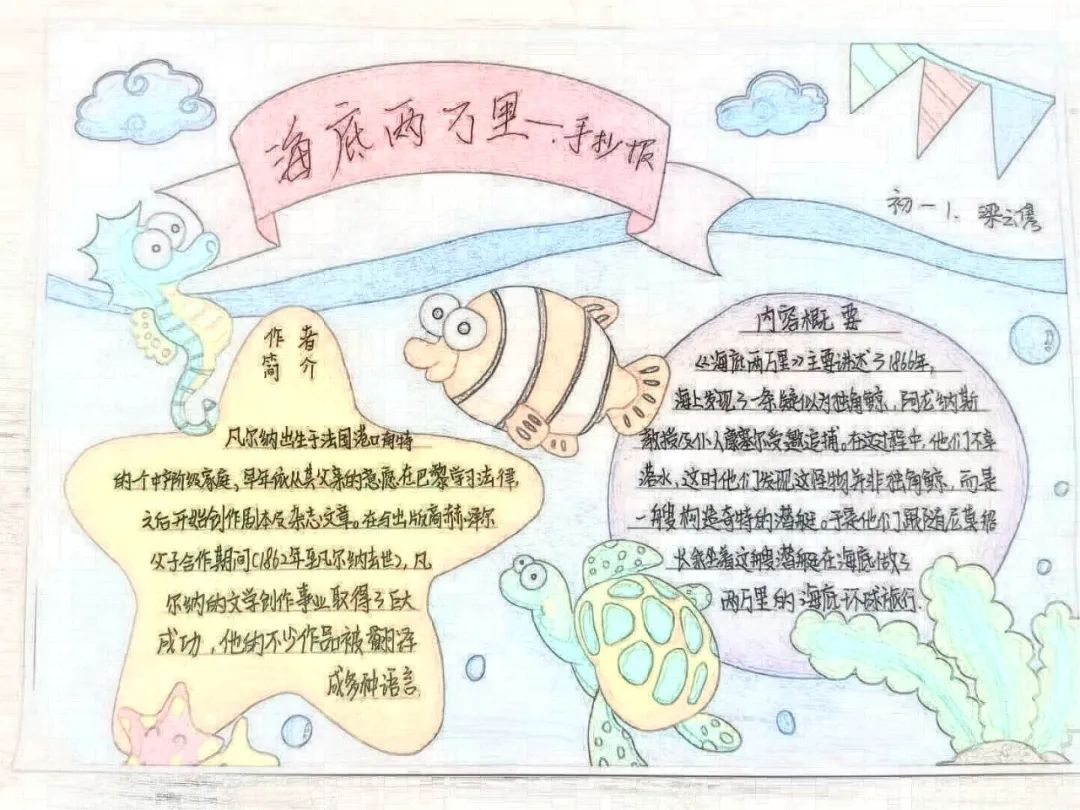 海底两万里一.手抄报
初一1. 梁云儁
作者
简介
凡尔纳出生于法国港口南特
的个中产阶级家庭,早年依从其父亲的意愿在巴黎学习法律,
之后开始创作剧本及杂志文章。在与出版商赫泽尔
父子合作期间(1862年至凡尔纳去世),凡
尔纳的文学创作事业取得了巨大
成功,他的不少作品被翻译
成多种语言.
内容概要
《海底两万里》主要讲述了1866年,
海上发现了一条疑似为独角鲸,阿龙纳斯
教授及仆人康塞尔受邀追捕。在这过程中,他们不幸
落水,这时他们发现这怪物并非独角鲸,而是
一艘构造奇特的潜艇。于是他们跟随尼莫船
长乘坐着这艘潜艇在海底做了
两万里的海底环球旅行.